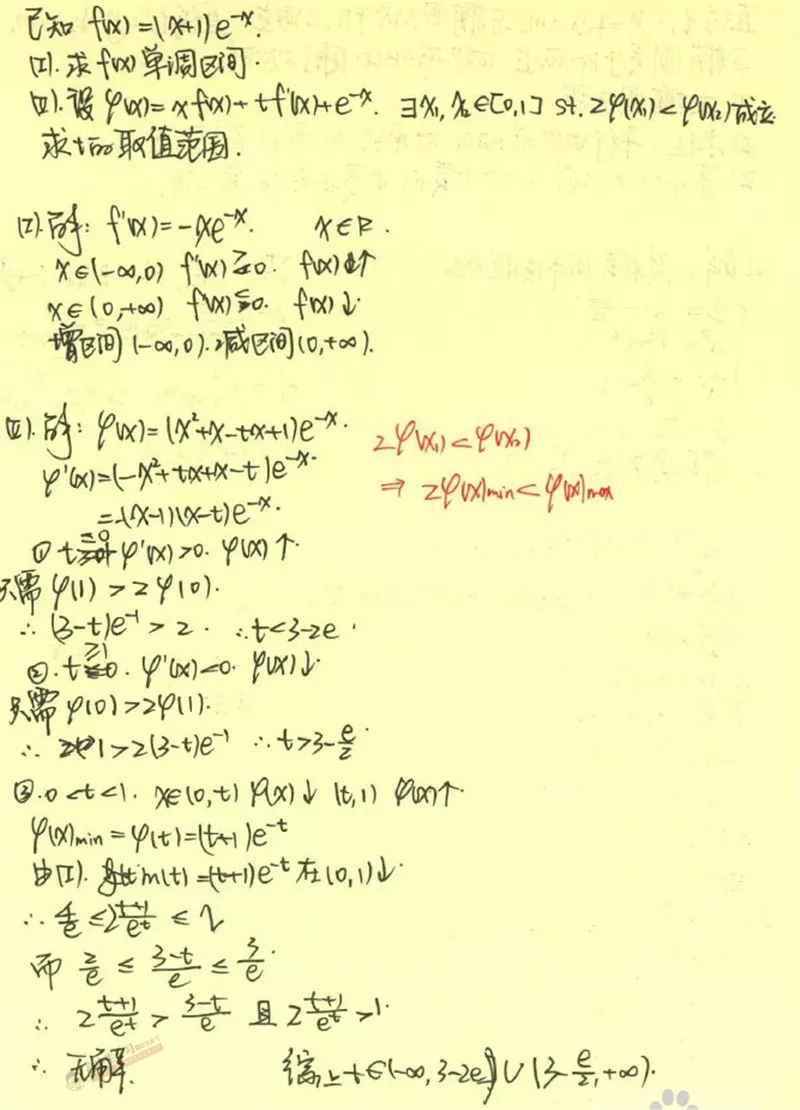 已知 f(x)=(x+1)e^{-x}.
(I). 求 f(x) 单调区间.
(II). 设 φ(x)=xf(x)+tf'(x)+e^{-x}. ∃x₁, x₂∈[0,1] st. 2φ(x₁)<φ(x₂)成立
求t的取值范围.
(I).解: f'(x)=-xe^{-x}. x∈R.
x∈(-∞,0) f'(x)≥0. f(x)↑
x∈(0,+∞) f'(x)≤0. f(x)↓
增区间(-∞,0).减区间(0,+∞).
(II).解: φ(x)=(x²+x-tx+1)e^{-x}.
2φ(x₁)<φ(x₂)
φ'(x)=(-x²+tx+x-t)e^{-x}.
⇒ 2φ(x)min<φ(x)max
=-(x-1)(x-t)e^{-x}.
① t≤0时 φ'(x)>0. φ(x)↑
只需 φ(1)>2φ(0).
∴(3-t)e^{-1}>2. ∴t<3-2e.
②.t≥1. φ'(x)<0. φ(x)↓
只需 φ(0)>2φ(1).
∴ 1>2(3-t)e^{-1} ∴t>3-e/2
③.0<t<1. x∈(0,t) φ(x)↓ (t,1) φ(x)↑
φ(x)min=φ(t)=(t+1)e^{-t}
由(I). m(t)=(t+1)e^{-t}在(0,1)↓
∴ 4/e≤2(t+1)/e^t≤2
而 2/e≤(3-t)/e≤3/e.
∴ 2(t+1)/e^t>(3-t)/e 且 2(t+1)/e^t>1.
∴ 无解. 综上 t∈(-∞,3-2e)∪(3-e/2,+∞).